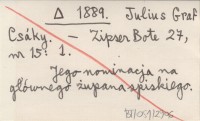 Δ 1889. Julius Graf
Csáky. — Zipser Bote 27,
nr 15: 1.
Jego nominacja na
głównego župana spiskiego.